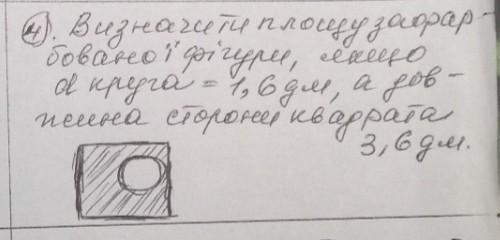 4). Визначити площу зафар-
бованої фігури, якщо
d круга = 1,6 дм, а дов-
жина сторони квадрата
3,6 дм.